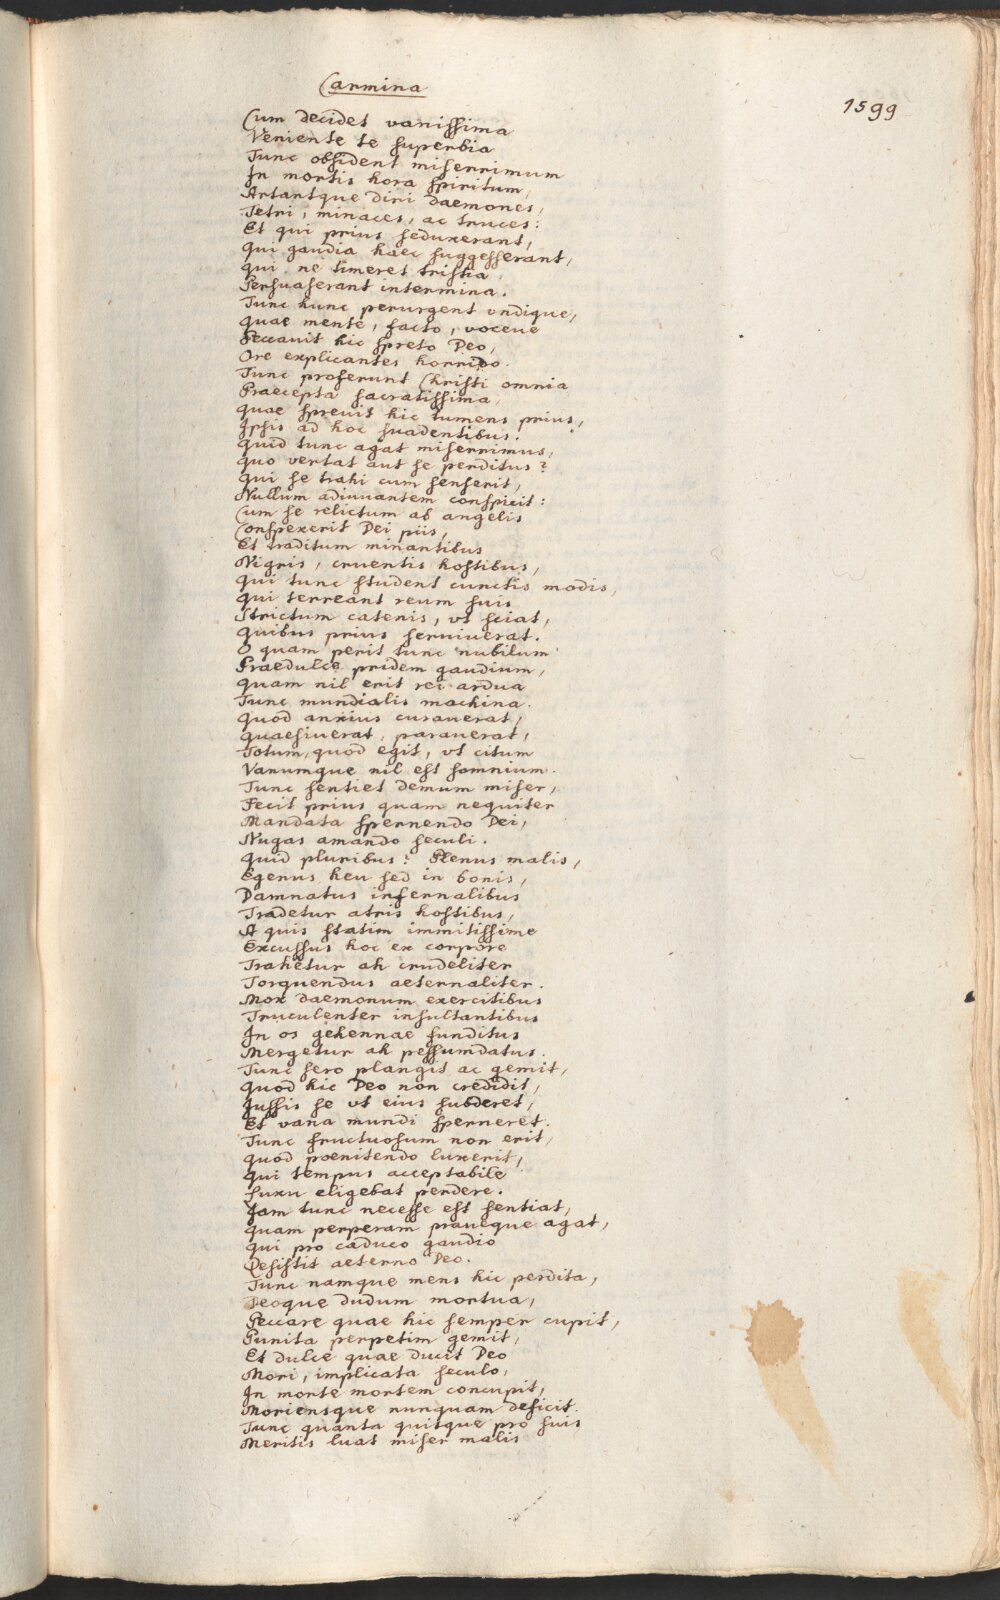 Carmina
1599
Cum decidet vanissima
Veniente te superbia
Tunc obsident miserrimum
In mortis hora spiritum,
Artantque diri daemones,
Tetri, minaces, ac truces:
Et qui prius seduxerant,
Qui gaudia haec suggesserant,
Qui ne timeret tristia
Persuaserant intermina.
Tunc hunc perurgent undique,
Quae mente, facto, voceve
Peccavit hic spreto Deo,
Ore explicantes horrido.
Tunc proferunt Christi omnia
Praecepta sacratissima,
Quae sprevit hic tumens prius,
Ipsis ad hoc suadentibus.
Quid tunc agat miserrimus,
Quo vertat aut se perditus?
Qui se trahi cum senserit,
Nullum adiuvantem conspicit:
Cum se relictum ab angelis
Conspexerit Dei piis,
Et traditum minantibus
Nigris, cruentis hostibus,
Qui tunc student cunctis modis,
Qui terreant reum suis
Strictum catenis, ut sciat,
Quibus prius serviverat.
O quam perit tunc nubilum
Praedulce pridem gaudium,
Quam nil erit rei ardua
Tunc mundialis machina.
Quod anxius curaverat,
Quaesiverat, paraverat,
Totum, quod egit, ut citum
Vanumque nil est somnium.
Tunc sentiet demum miser,
Fecit prius quam nequiter
Mandata spernendo Dei,
Nugas amando seculi.
Quid pluribus? Plenus malis,
Egenus heu sed in bonis,
Damnatus infernalibus
Tradetur atris hostibus,
A quis statim immitissime
Excussus hoc ex corpore
Trahetur ah crudeliter
Torquendus aeternaliter.
Mox daemonum exercitibus
Truculenter insultantibus
In os gehennae funditus
Mergetur ah pessumdatus.
Tunc sero plangit ac gemit,
Quod hic Deo non credidit,
Iussis se ut eius subderet,
Et vana mundi sperneret.
Tunc fructuosum non erit,
Quod poenitendo luxerit,
Qui tempus acceptabile
Luxu eligebat perdere.
Iam tunc necesse est sentiat,
Quam perperam praveque agat,
Qui pro caduco gaudio
Desistit aeterno Deo.
Tunc namque mens hic perdita,
Deoque dudum mortua,
Peccare quae hic semper cupit,
Punita perpetim gemit,
Et dulce quae ducit Deo
Mori, implicata seculo,
In morte mortem concupit,
Moriensque nunquam deficit.
Tunc quanta quisque pro suis
Meritis luat miser malis